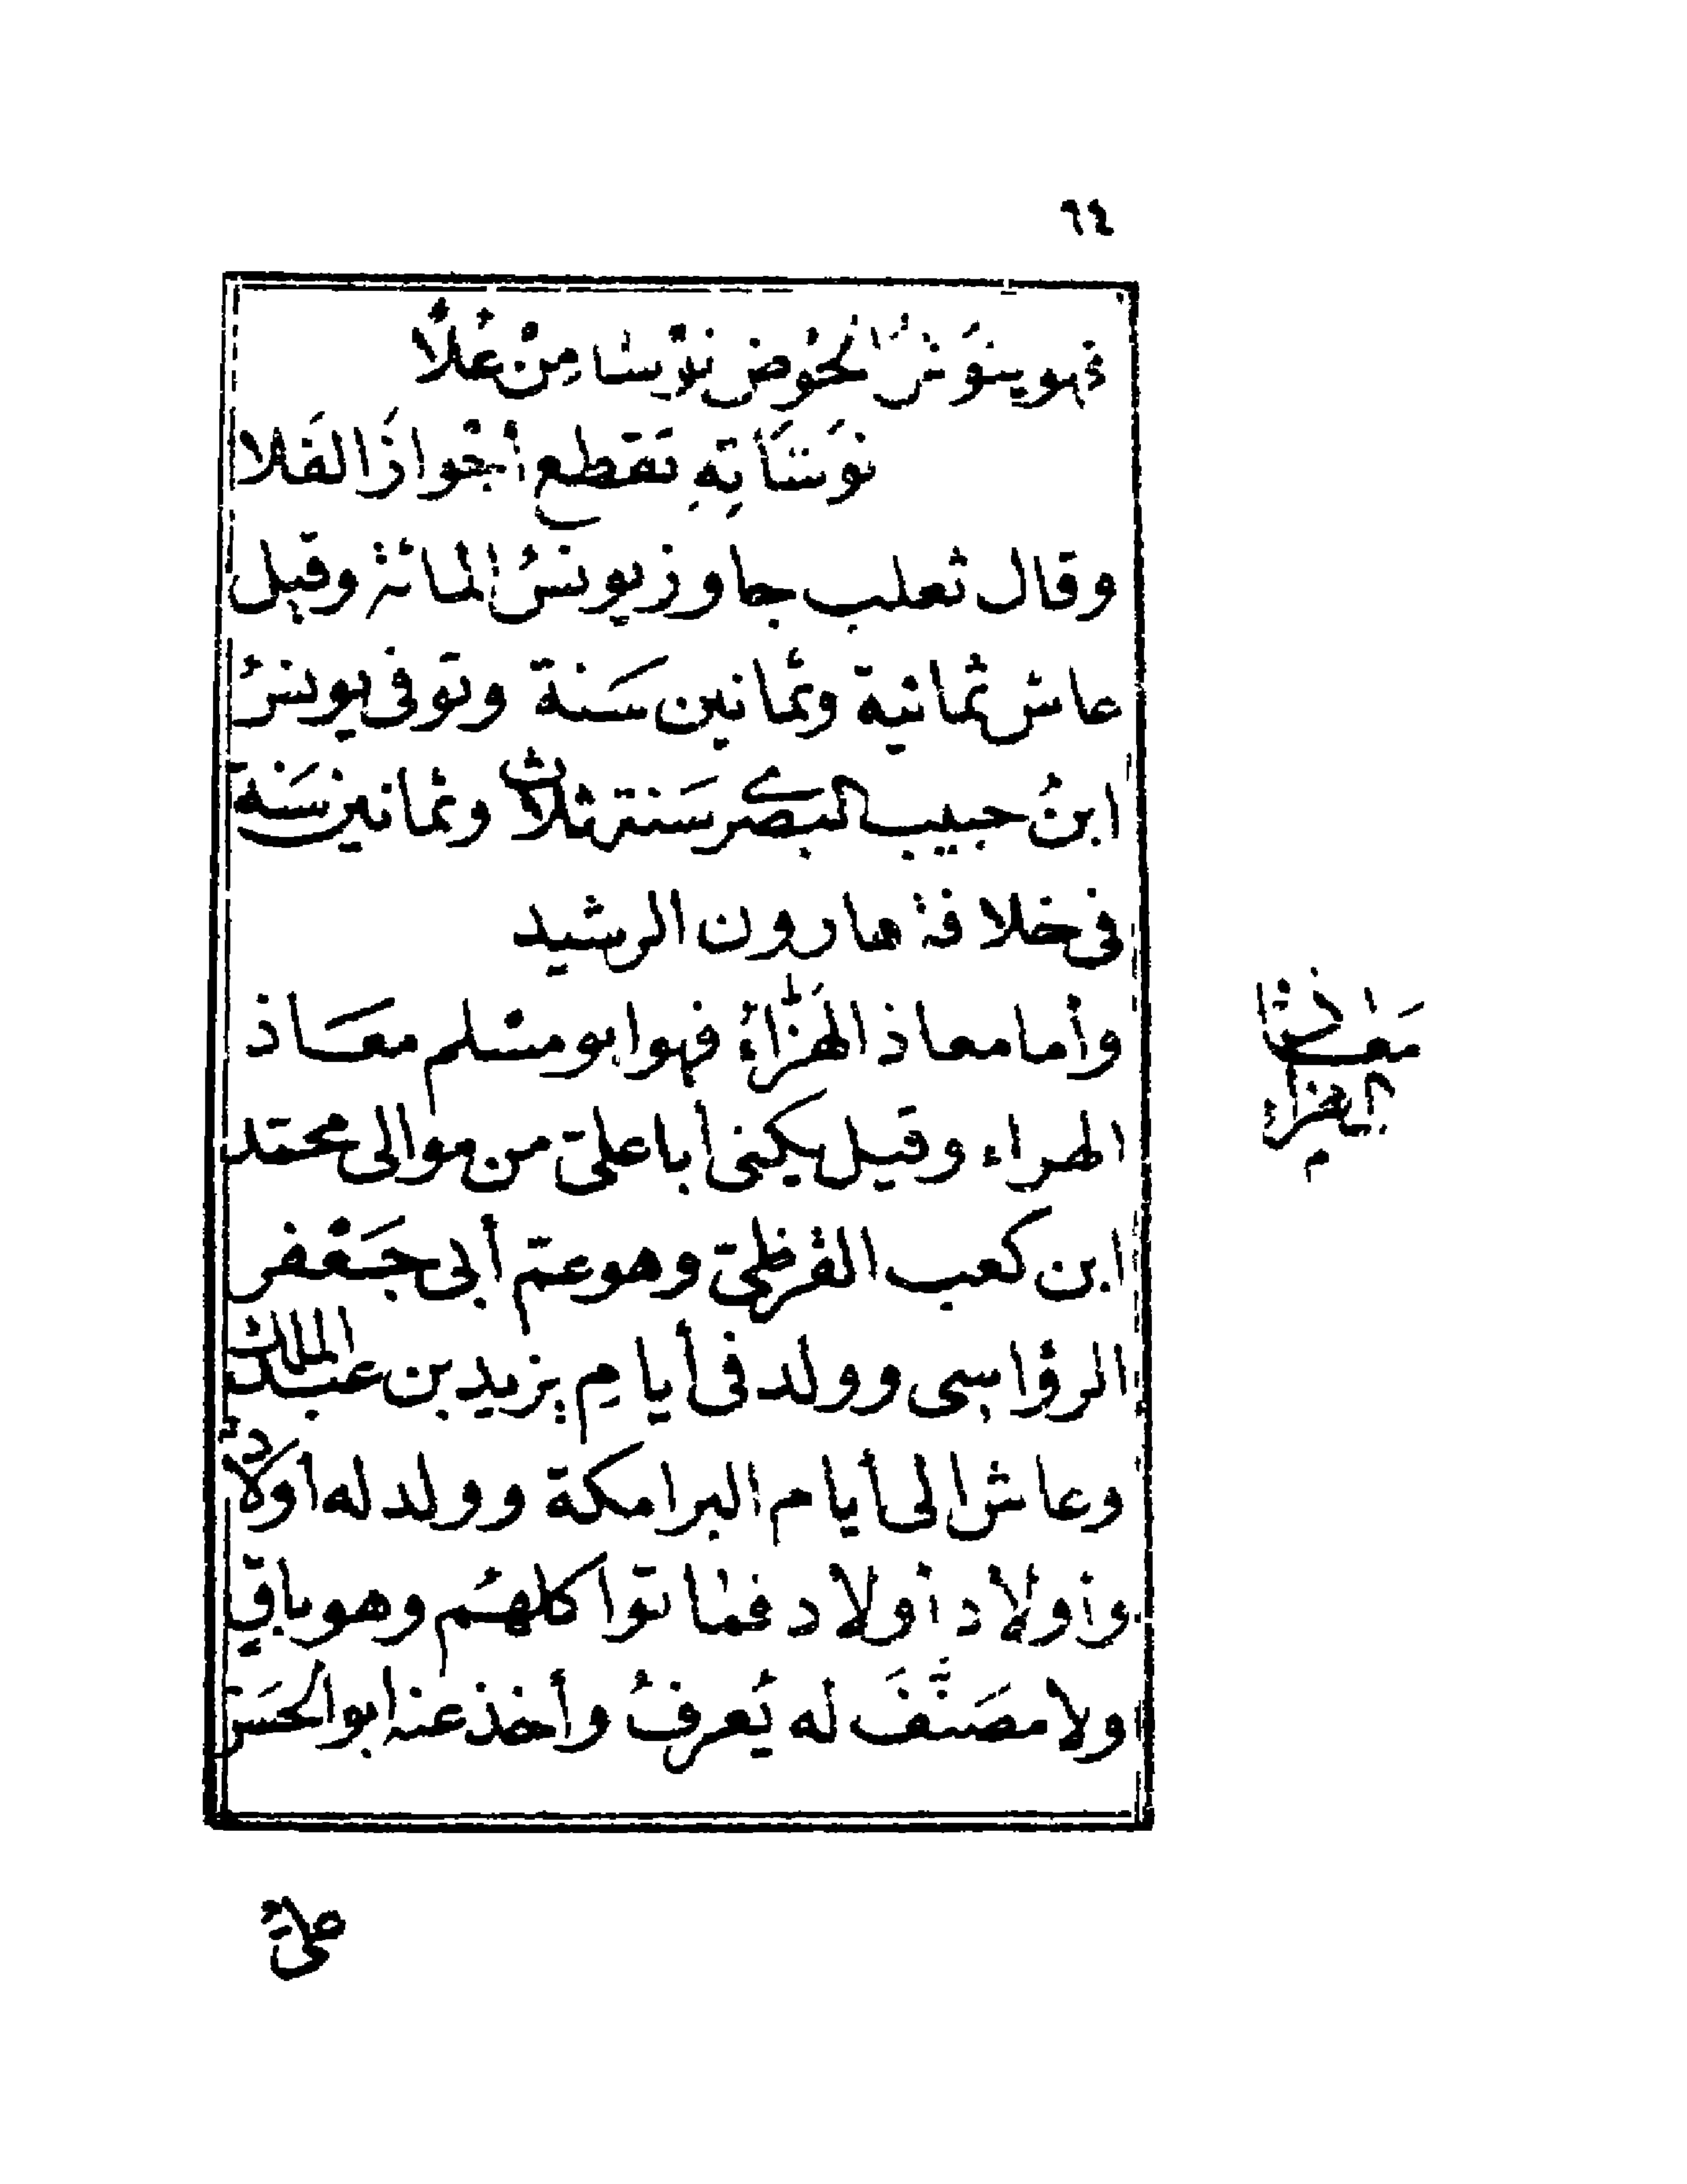 ٦٤
فهو ينوش الحوض نوشا من علا
نوشا به تقطع أجواز الفلا
وقال ثعلب جاوز يونس المائة وقيل
عاش ثمانية وثمانين سنة وتوفى يونس
ابن حبيب البصرى سنة ثلاث وثمانين سنة
فى خلافة هارون الرشيد
وأما معاذ الهرّاء فهو ابو مسلم معاذ
الهراء وقيل يكنى أبا على من موالى محمد
ابن كعب القرظى وهو عم أبى جعفر
الرؤاسى وولد فى أيام يزيد بن عبد الملك
وعاش الى أيام البرامكة وولد له أولاد
وأولاد أولاد فماتوا كلهم وهو باق
ولا مصنف له يعرف وأخذ عنه ابو الحسن
معاذ
الهراء
على